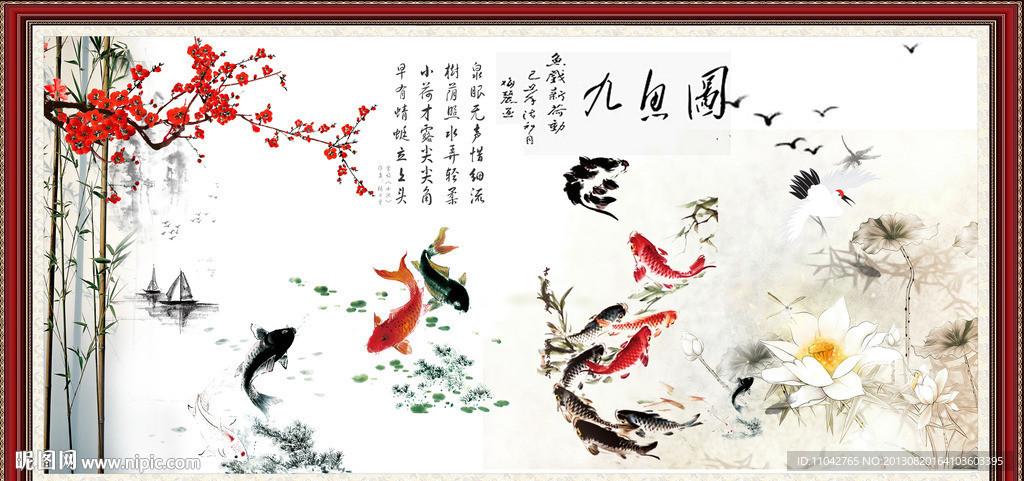 九魚圖
魚戲新荷動
泉眼无声惜细流
樹蔭照水弄轻柔
小荷才露尖尖角
早有蜻蜓立上头
昵图网 www.nipic.com
ID:11042765 NO:20130820164103603395